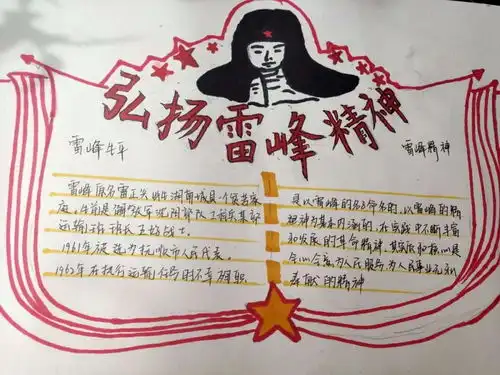 弘扬雷峰精神
雷峰生平
雷峰原名雷正兴 出生湖南 城县一个贫苦家
庭,生前是 军沈阳部队工程兵某部
运输连班 班长 五好战士。
1961年 选为抚顺市人民代表。
1962年在执行运输任务时不幸殉职
雷峰精神
是以雷峰的名字命名的,以雷峰的精
神为基本内涵的,在实践中不断丰富
和发展的革命精神,其实质和核心是
全心全意为人民服务,为人民事业无私
奉献的精神